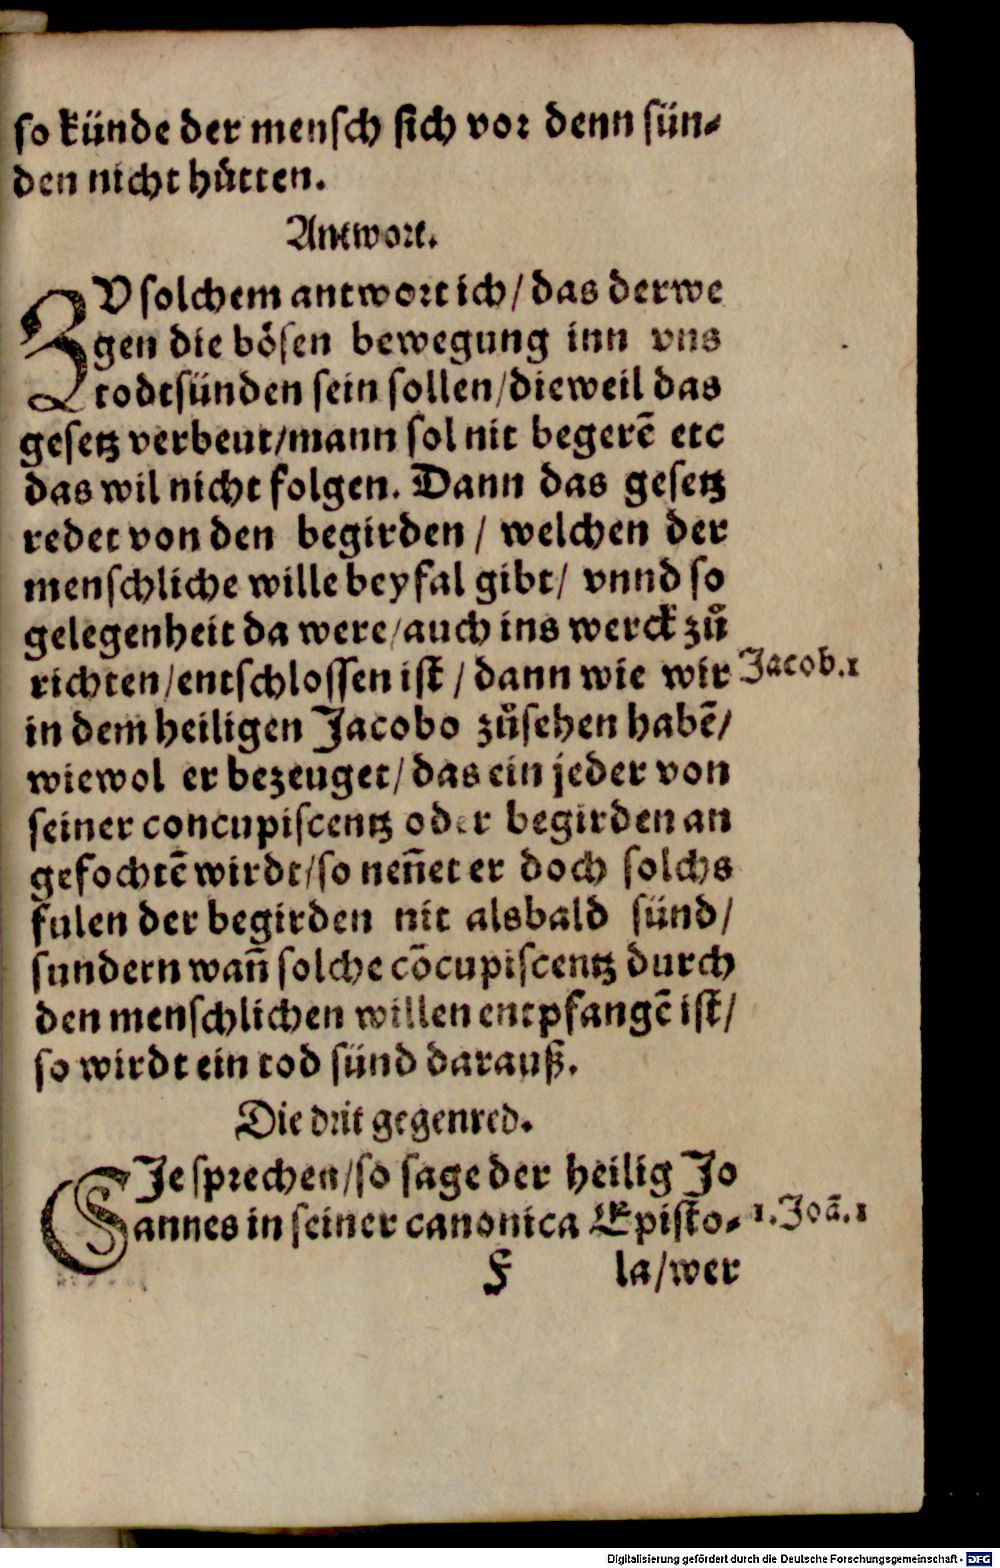 so künde der mensch sich vor denn sün⸗
den nicht hütten.
Antwort.
ZV solchem antwort ich/ das derwe
gen die bösen bewegung inn vns
todtsünden sein sollen/dieweil das
gesetz verbeut/mann sol nit begerē etc
das wil nicht folgen. Dann das gesetz
redet von den begirden / welchen der
menschliche wille beyfal gibt/ vnnd so
gelegenheit da were/auch ins werck zů
richten/entschlossen ist / dann wie wir
Jacob.1
in dem heiligen Jacobo zůsehen habē/
wiewol er bezeuget/ das ein jeder von
seiner concupiscentz oder begirden an
gefochtē wirdt/so nen̄et er doch solchs
fulen der begirden nit alsbald sünd/
sundern wan̄ solche cōcupiscentz durch
den menschlichen willen entpfangē ist/
so wirdt ein tod sünd darauß.
Die drit gegenred.
SJe sprechen/so sage der heilig Jo
annes in seiner canonica Episto⸗
1.Joā.1
F la/wer
Digitalisierung gefördert durch die Deutsche Forschungsgemeinschaft - DFG